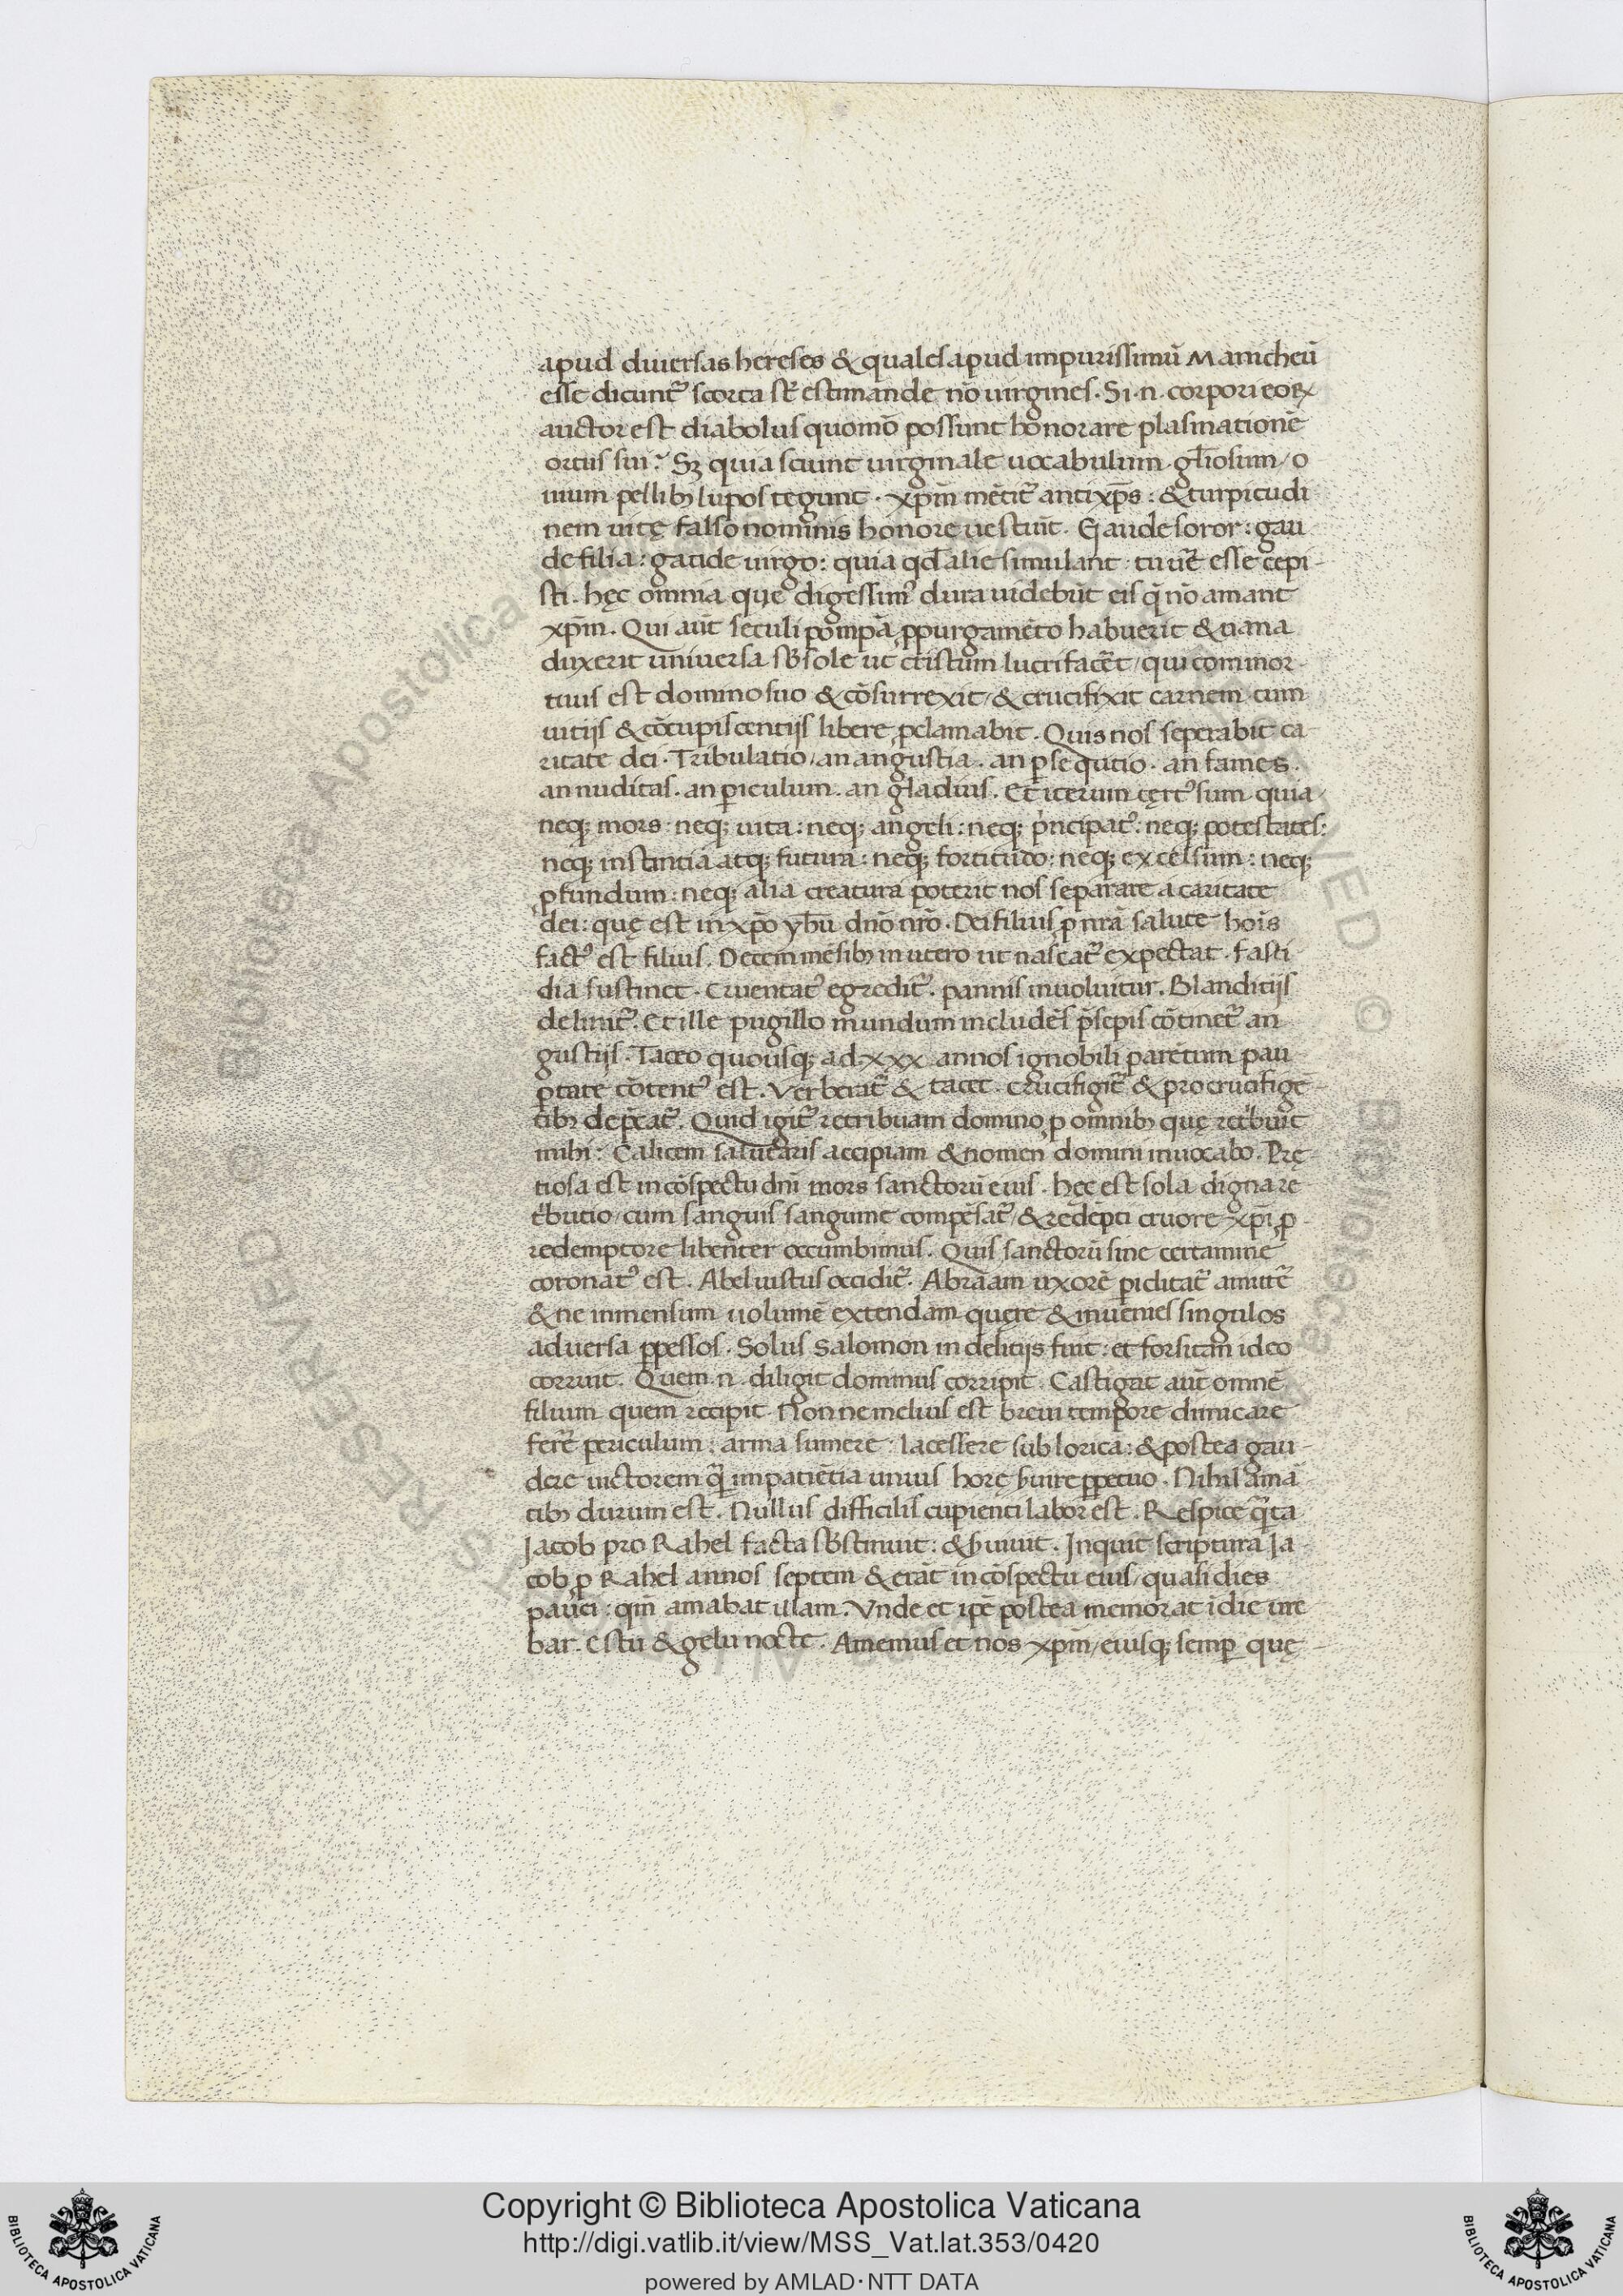 apud diuersas hereses & quales apud impurissimū Manicheū
esse dicunt᷑ scorta st̄ estimande nō uirgines. Si .n. corpori eoꝝ
auctor est diabolus quomō possunt honorare plasmationē
ortus sui? Sꝫ quia sciunt uirginale uocabulum gl̄iosum / o
uium pellibꝫ lupos tegunt. xp̄m mētit᷑ antixp̄s: & turpitudi
nem uitę falso nominis honore uestiūt. Gaude soror: gau
de filia: gaude uirgo: quia qd̄ alie simulant tu ue᷑ esse cepi-
sti. hęc omnia que digessimꝰ dura uidebūt eis q̄ nō amant
xp̄m. Qui aūt seculi pompā ꝓ purgamēto habuerit & uana
duxerit uniuersa sb̄ sole ut cristum lucrifacēt / qui commor-
tuus est domino suo & cōsurrexit / & crucifixit carnem cum
uitijs & cōcupiscentijs libere ꝓclamabit. Quis nos seperabit ca
ritate dei. Tribulatio / an angustia. an ꝑsequtio. an fames.
an nuditas. an ꝑiculum. an gladius. Et iterum cęrtꝰ sum quia
neqꝫ mors: neqꝫ uita: neqꝫ angeli: neqꝫ pⁱncipatꝰ: neqꝫ potestates:
neqꝫ instantia atqꝫ futura: neqꝫ fortitudo: neqꝫ excelsum: neqꝫ
ꝓfundum: neqꝫ alia creatura poterit nos separare a caritate
dei: quę est in xp̄o yh̄u dn̄o nr̄o. Dei filius ꝓ nrā salute hoīs
factꝰ est filius. Decem mēsibꝫ in utero ut nascat᷑ expectat. fasti
dia sustinet. Cruentatꝰ egredit᷑. pannis inuoluitur. Blanditijs
delinit᷑. Et ille pugillo mundum includēs p̄sepis cōtinet᷑ an
gustijs. Taceo quousqꝫ ad xxx annos ignobili parētum pau
ꝑtate cōtentꝰ est. Verberat᷑ & tacet. crucifigit᷑ & pro crucifigē-
tibꝫ dep̄cat᷑. Quid igit᷑ retribuam domino ꝓ omnibꝫ quę retⁱbuit
mihi: Calicem salutaris accipiam & nomen domini inuocabo. Prę
tiosa est in cōspectu dn̄i mors sanctorū eius. hęc est sola digna re
tⁱbutio / cum sanguis sanguine compēsat᷑ / & redēpti cruore xp̄i ꝓ
redemptore libenter occumbimus. Quis sanctorū sine certamine
coronatꝰ est. Abel iustus occidit᷑. Abraam uxorē ꝑiclitat᷑ amitte᷑
& ne inmensum uolumē extendam quęre & inuenies singulos
aduersa ꝑpessos. Solus Salomon in delitijs fuit: et forsitan ideo
corruit. Quem .n. diligit dominus corripit. Castigat aūt omnē
filium quem recipit. Nonne melius est breui tempore dimicare
ferre periculum: arma sumere: lacessere sub lorica: & postea gau-
dere uictorem q̄ impatiētia unius horę s̄uire ꝑpetuo. Nihil amā-
tibꝫ durum est. Nullus difficilis cupienti labor est. Respice qᵃ̄ta
Jacob pro Rahel facta sb̄stinuit: & s̄uiuit. Inquit scriptura Ja
cob ꝓ Rahel annos septem & erāt in cōspectu eius / quasi dies
pauci: qm̄ amabat illam. Vnde et ip̄e postea memorat ī die ure
bar. estu & gelu nocte. Amemus et nos xp̄m / eiusqꝫ semꝑ quę-
Copyright © Biblioteca Apostolica Vaticana
http://digi.vatlib.it/view/MSS_Vat.lat.353/0420
powered by AMLAD·NTT DATA
BIBLIOTECA APOSTOLICA VATICANA
BIBLIOTECA APOSTOLICA VATICANA